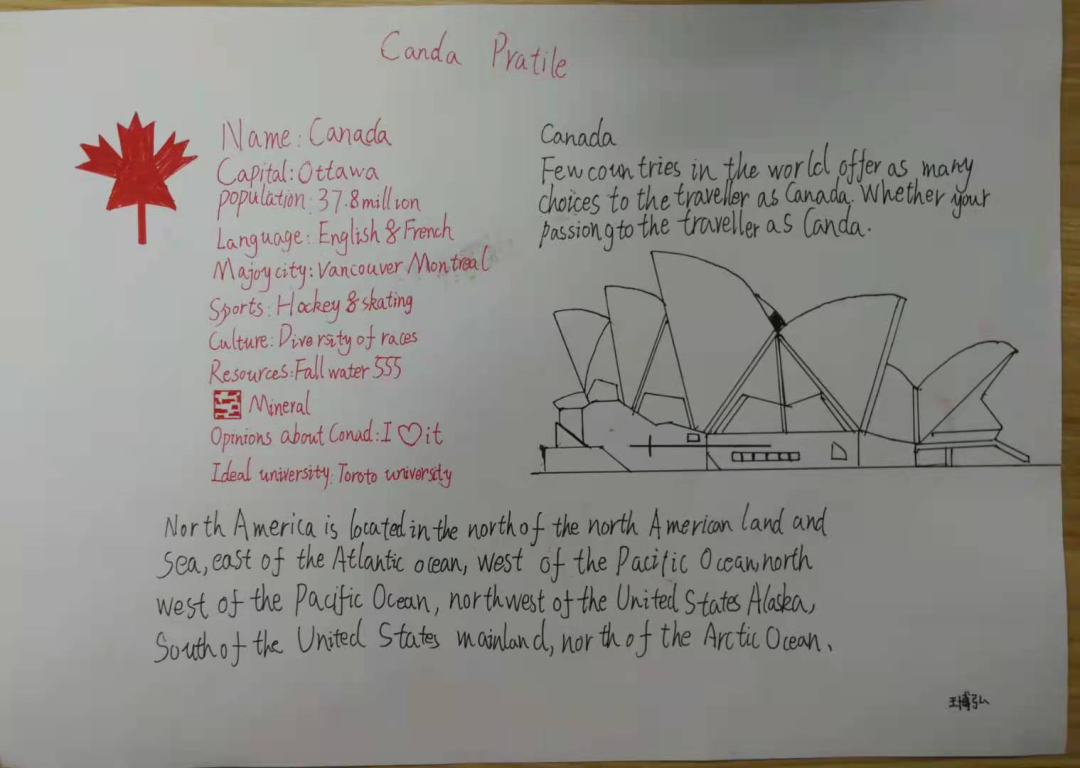 Canda Pratile
Name: Canada
Capital: Ottawa
population: 37.8million
Language: English & French
Majoy city: Vancouver Montreal
Sports: Hockey & skating
Culture: Diversity of races
Resources: Fall water 555
Mineral
Opinions about Conad: I ♡ it
Ideal university: Toroto university
Canada
Few countries in the world offer as many
choices to the traveller as Canada. Whether your
passiong to the traveller as Canda.
North America is located in the north of the north American land and
Sea, east of the Atlantic ocean, west of the Pacific Ocean, north
west of the Pacific Ocean, northwest of the United States Alaska,
South of the United States mainland, north of the Arctic Ocean.
王博弘